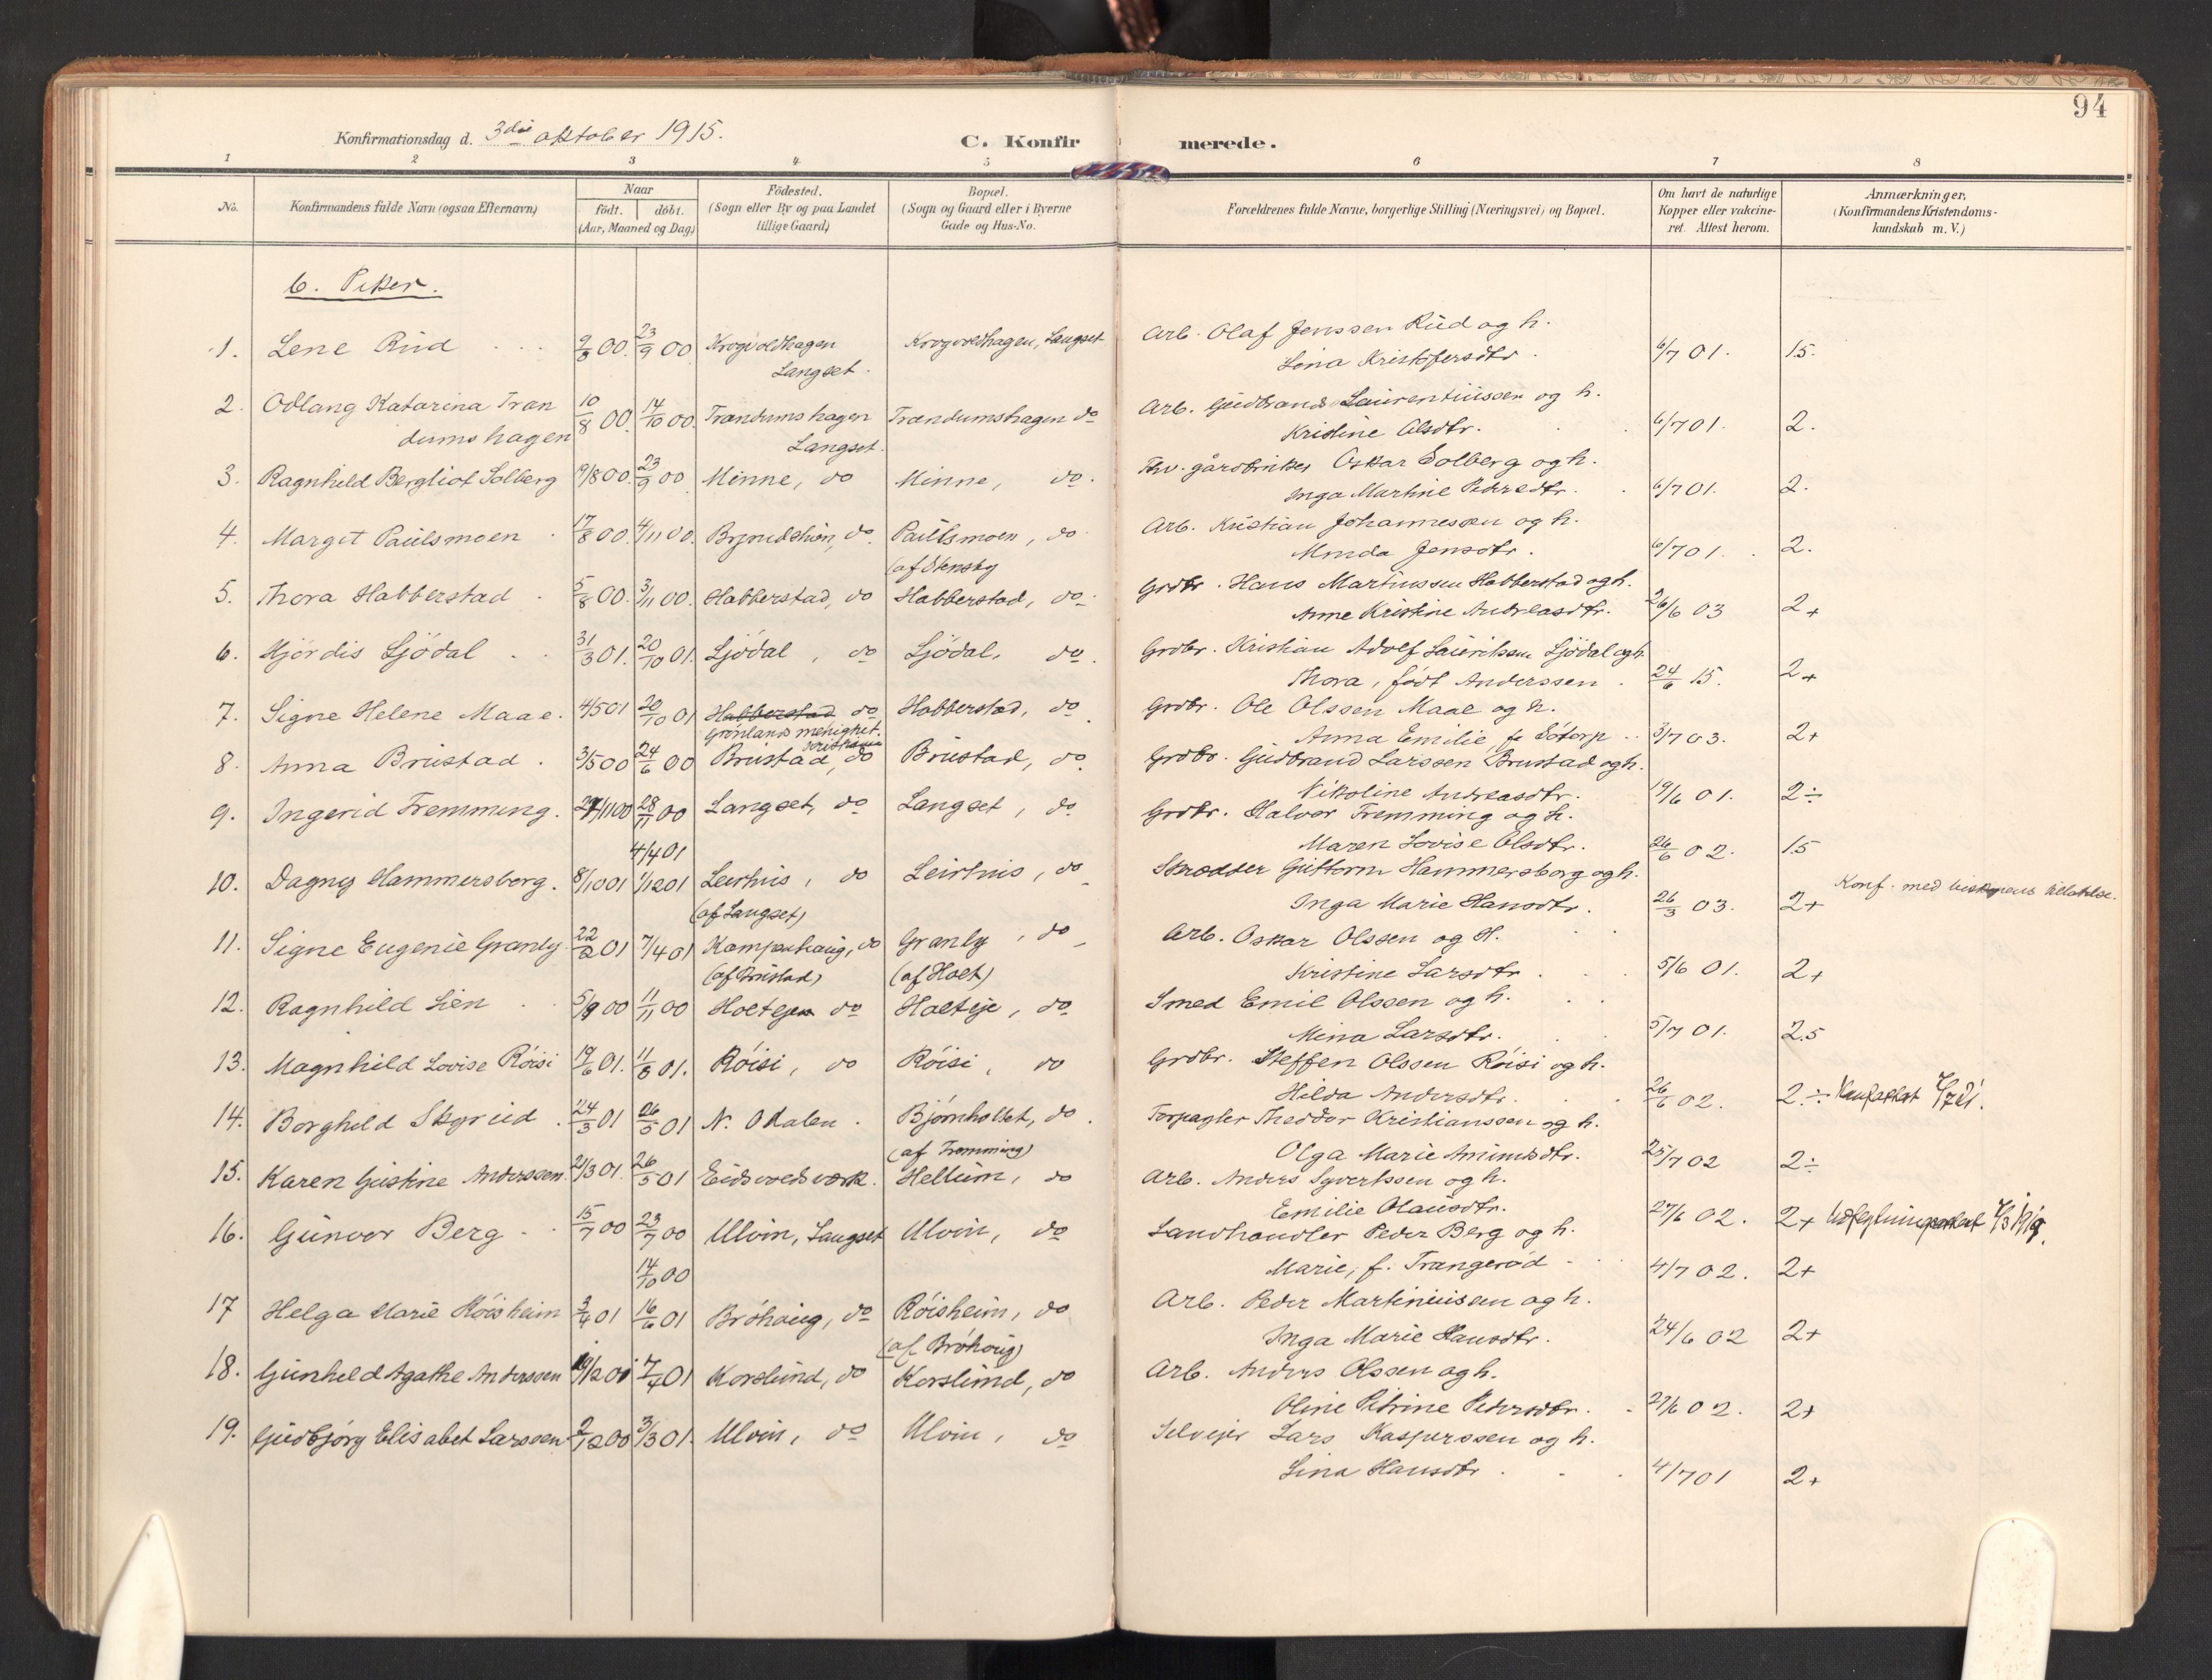 94
Konfirmationsdag d. 3die oktober 1915.
C. Konfirmerede.
1 2 3 4 5 6 7 8
No.
Konfirmandens fulde Navn (ogsaa Efternavn)
Naar
födt. döbt.
(Aar, Maaned og Dag)
Födested.
(Sogn eller By og paa Landet
tillige Gaard)
Bopæl.
(Sogn og Gaard eller i Byerne
Gade og Hus-No.
Forældrenes fulde Navne, borgerlige Stilling (Næringsvei) og Bopæl.
Om havt de naturlige
Kopper eller vakcine-
ret. Attest herom.
Anmærkninger.
(Konfirmandens Kristendoms-
kundskab m. V.)
b. Piker.
1. Lene Rud 9/8 00. 23/9 00 Krogvoldhagen Krogvoldhagen, Langset Arb. Olaf Jenssen Rud og h.
Langset. Lina Kristofersdtr. 6/7 01. 1.5.
2. Odlaug Katarina Tran 10/8 00. 14/10 00 Trandumshagen Trandumshagen do Arb. Gudbrand Laurentiussen og h.
dumshagen Langset. Kristine Olsdtr. 6/7 01. 2.
3. Ragnhild Bergliot Solberg 19/8 00. 23/9 00 Minne, do Minne, do. gårdbruker Oskar Solberg og h.
Inga Martine Pedersdtr. 6/7 01. 2.
4. Margit Paulsmoen 17/8 00. 4/11 00. do. Paulsmoen, do Arb. Kristian Johannessen og h.
(af Stensby Jensdtr. 6/7 01. 2.
5. Thora Habberstad 5/8 00. 3/11 00. Habberstad, do Habberstad, do. Grdbr. Hans Martinssen Habberstad og h.
Anne Kristine Andreasdtr. 26/6 03 2+
6. Hjördis Ljödal 31/3 01. 20/10 01. Ljödal, do Ljödal, do. Grdbr. Kristian Adolf Lauritsen Ljödal og h
Thora, födt Anderssen 24/6 15. 2+
7. Signe Helene Maae. 4/5 01 20/10 01 Habberstad do Habberstad, do. Grdbr. Ole Olssen Maae og h.
Grönlands menighet. Anna Emilie, f. Sötorp 3/7 03. 2+
8. Anna Brustad 3/5 00 24/6 00 Brustad, do Brustad, do. Grdbr. Gudbrand Larssen Brustad og h.
Nikoline Andreasdtr. 19/6 01. 2÷
9. Ingerid Fremming. 27/11 00 28/11 00 Langset, do Langset, do Grdbr. Halvor Fremming og h.
4/4 01 Maren Lovise Olsdtr. 26/6 02. 1.5
10. Dagny Hammersborg. 8/10 01 1/12 01 Leirhus, do Leirhus, do Skrædder Guttorm Hammersborg og h.
(af Langset) Inga Marie Hansdtr. 26/3 03. 2+ Konf. med biskopens tilladelse.
11. Signe Eugenie Granly 22/2 01 7/4 01 Kampenhaug, do Granly, do Arb. Oskar Olssen og H.
(af Brustad) (af Holt) Kristine Larsdtr. 5/6 01. 2+
12. Ragnhild Lien 5/9 00 11/11 00 Holteje do Holteje, do Smed Emil Olssen og h.
Mina Larsdtr. 5/7 01. 2.5
13. Magnhild Lovise Röisi 19/6 01. 11/8 01. Röisi, do Röisi, do Grdbr. Steffen Olssen Röisi og h.
Hilda Andersdtr. 26/6 02. 2.÷
14. Borghild Skyrud 24/3 01 26/5 01 N. Odalen. Bjørnholtet, do. Forpagter Theodor Kristianssen og h.
(af Fremming) Olga Marie Amundsdtr. 25/7 02 2÷
15. Karen Gustine Anderssen 21/3 01. 26/5 01 Eidsvoldsværk. Hellum, do Arb. Anders Syvertssen og h.
Emilie Olausdtr. 27/6 02. 2+
16. Gunvor Berg 15/7 00 23/7 00 Ulvin, Langset Ulvin, do Landhandler Peder Berg og h.
14/10 00 Marie, f. Trangeröd 4/7 02. 2+
17 Helga Marie Röisheim 3/4 01 16/6 01 Bröhaug, do Röisheim, do Arb. Peder Martiniusen og h.
(af Bröhaug) Inga Marie Hansdtr. 24/6 02 2+
18. Gunhild Agathe Anderssen 19/12 00 7/4 01 Korslund, do Korslund, do Arb. Anders Olssen og h.
Oline Petrine Pedersdtr. 27/6 02. 2+
19. Gudbjørg Elisabet Larssen 2/12 00 3/3 01. Ulvin, do Ulvin, do Selveier Lars Kasperssen og h.
Lina Hansdtr. 4/7 01 2+